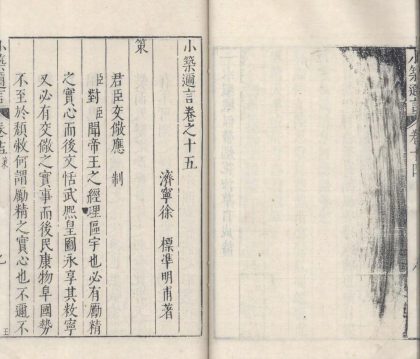 小築邇言卷之十五
濟寧徐 標準明甫著
策
君臣交儆應 制
臣對臣聞帝王之經理區宇也必有勵精
之實心而後文恬武熙皇圖永享其敉寧
又必有交儆之實事而後民康物阜國勢
不至於頹敝何謂勵精之實心也不邇不
小築邇言 卷之十五 策
小築邇言 卷十四